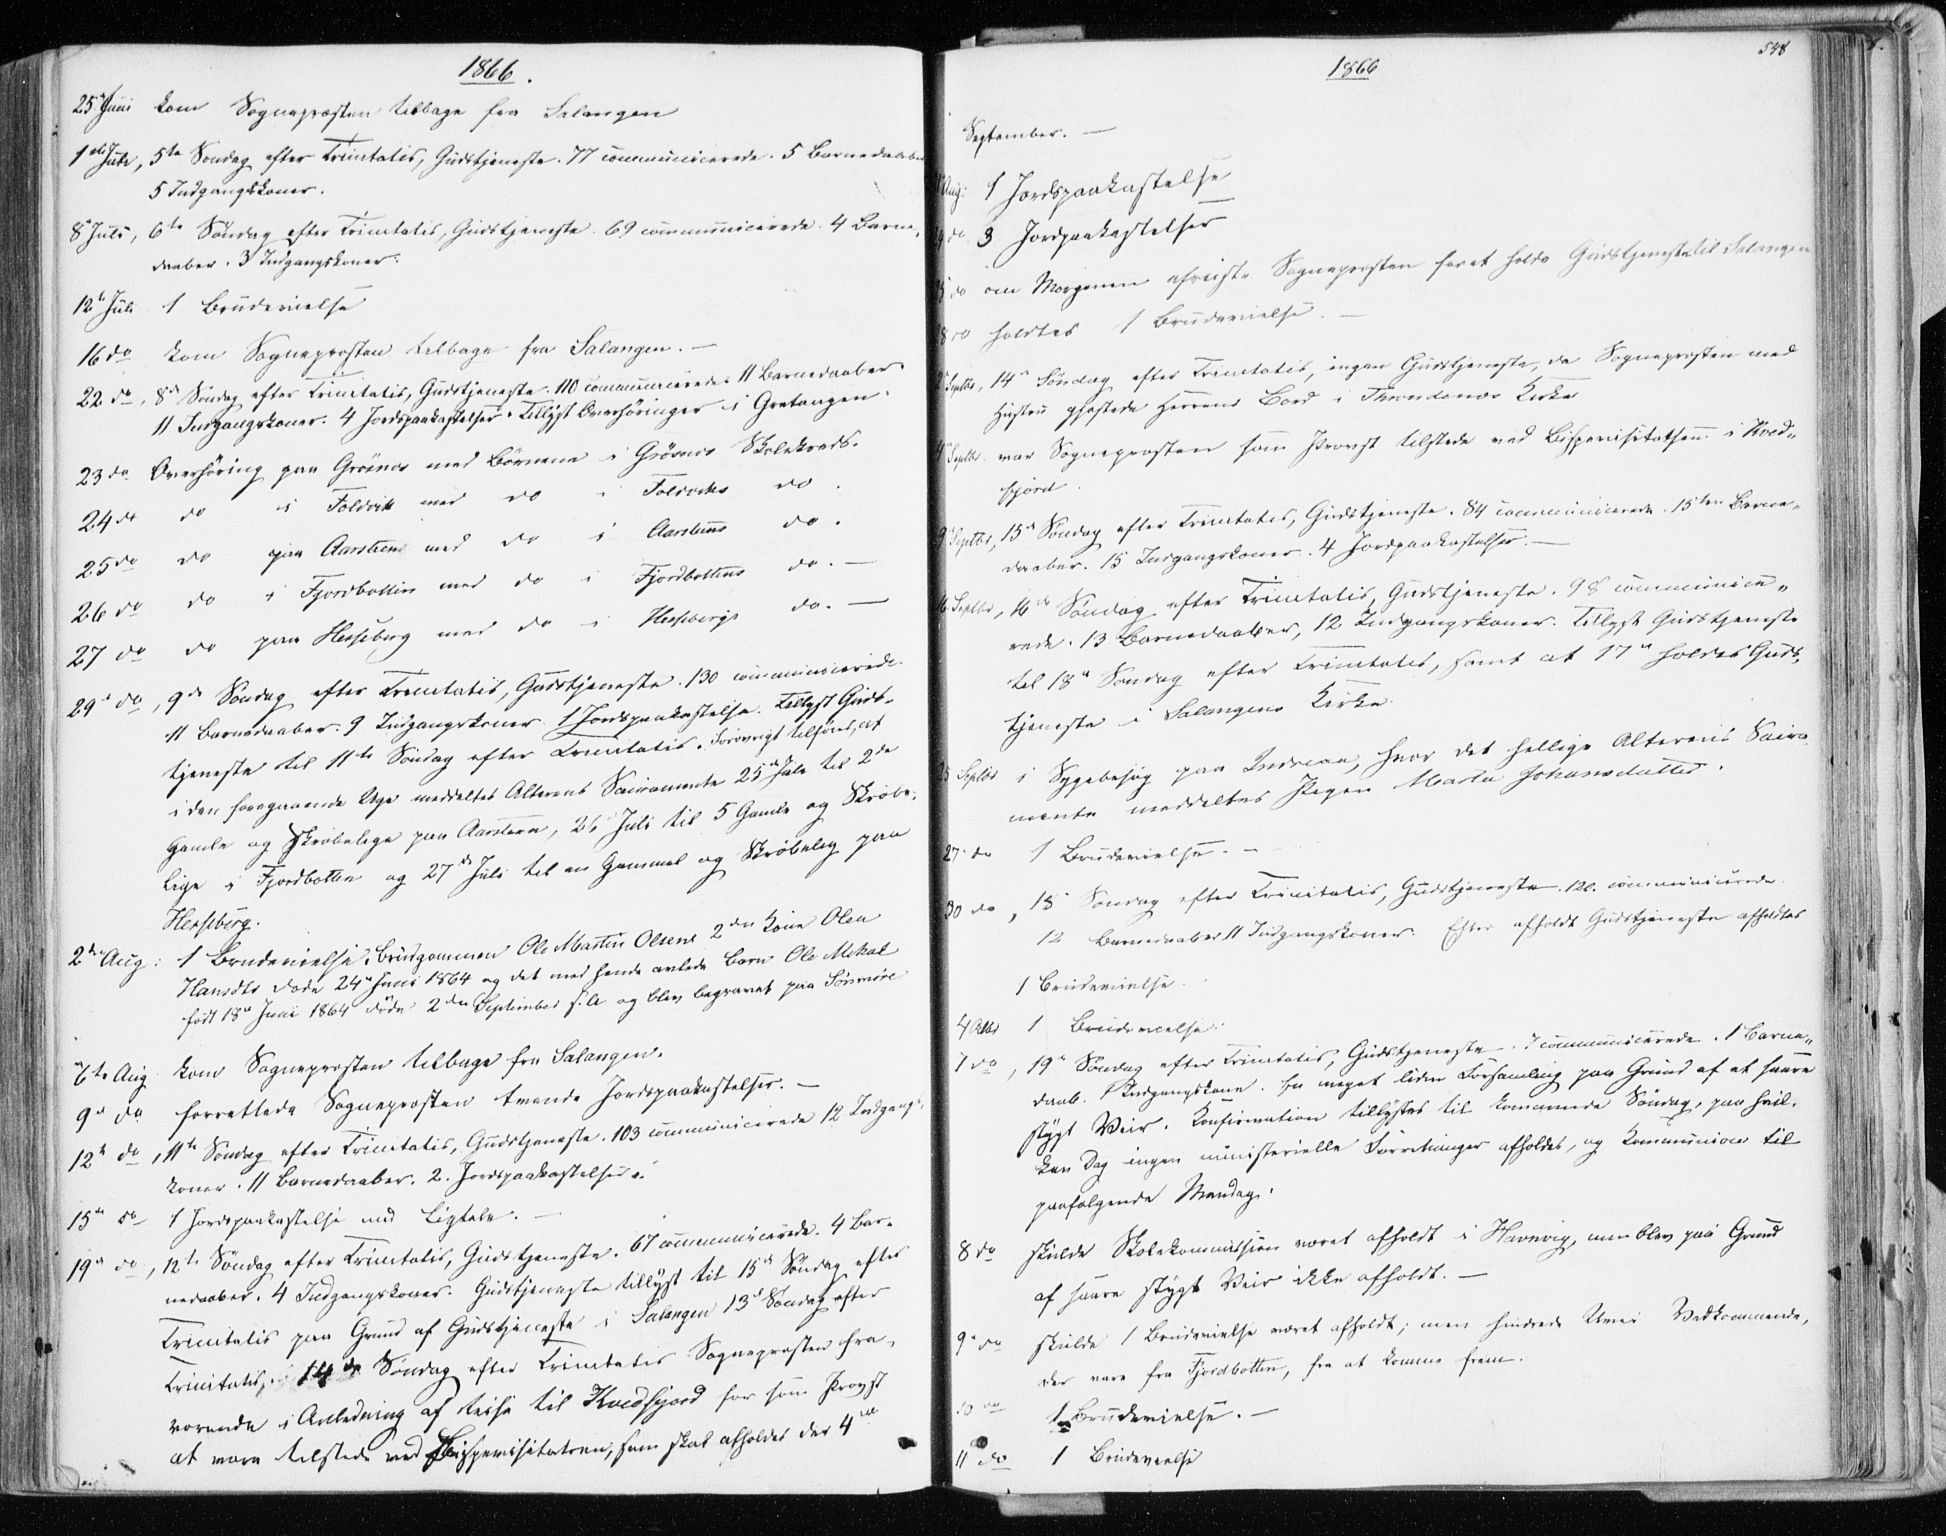 1866.
25de Juni kom Sognepræsten tilbage fra Salangen
1ste Juli, 5te Søndag efter Trinitatis, Gudstjeneste. 77 communicerede. 5 Barnedaaber
5 Indgangskoner.
8de Juli, 6te Søndag efter Trinitatis, Gudstjeneste. 69 communicerede. 4 Barne-
daaber. 3 Indgangskoner.
12te Juli 1 Brudevielse
16 do kom Sognepræsten tilbage fra Salangen. —
22 do, 8de Søndag efter Trinitatis, Gudstjeneste. 110 communicerede. 11 Barnedaaber
11 Indgangskoner. 4 Jordspaakastelser. Tillyst Overhøringer i Gratangen.
23 do Overhøring paa Grøsnes med Børnene i Grøsnes Skolekreds.
24 do do i Foldvik med do i Foldviks do.
25 do do paa Aarsteen med do i Aarsteens do.
26 do do i Fjordbotten med do i Fjordbottens do. —
27 do do paa Hesseberg med do i Hessebergs do. —
29de do, 9de Søndag efter Trinitatis, Gudstjeneste. 130 communicerede.
11 Barnedaaber. 9 Indgangskoner. 1 Jordspaakastelse. Tillyst Guds-
tjeneste til 11te Søndag efter Trinitatis. Forøvrigt tilføres, at
i den foregaaende Uge meddeltes Alterens Sacramente 25de Juli til 2de
Gamle og Skrøbelige paa Aarsteen, 26 Juli til 5 Gamle og Skrøbe-
lige i Fjordbotten og 27de Juli til en Gammel og Skrøbelig paa
Hesseberg.
2den Aug: 1 Brudevielse. Brudgommen Ole Martin Olsens 2den Kone Olea
Hansdtr døde 24de Juni 1864 og det med hende avlede Barn Ole Mikal
født 18de Juni 1864 døde 2den September s. A. og blev begravet paa
6te Aug kom Sognepræsten tilbage fra Salangen.
9de do forrettede Sognepræsten tvende Jordspaakastelser. —
12te do, 11te Søndag efter Trinitatis, Gudstjeneste. 103 communicerede 12 Indgangs-
koner. 11 Barnedaaber. 2. Jordspaakastelser.
15de do 1 Jordspaakastelse med Ligtale. —
19de do, 12te Søndag efter Trinitatis, Gudstjeneste. 67 communicerede. 4 Bar-
nedaaber. 4 Indgangskoner. Gudstjeneste tillyst til 15de Søndag efter
Trinitatis paa Grund af Gudstjeneste i Salangen 13de Søndag efter
Trinitatis, 14de Søndag efter Trinitatis Sognepræsten fra-
værende i Anledning af Reise til Kvædfjord for som Provst
at være tilstede ved Bispevisitatsen, som skal afholdes der 4de
1866
548
September. —
Aug: 1 Jordspaakastelse
do 3 Jordpaakastelser
do om Morgenen afreiste Sognepræsten foret holde Gudstjeneste til Salangen
do holdtes 1 Brudevielse. —
2 Septbr, 14de Søndag efter Trinitatis, ingen Gudstjeneste, da Sognepræsten med
Hustru gjæstede Herrens Bord i Throndenæs Kirke
4 Septbr. var Sognepræsten som Provst tilstede ved Bispevisitatsen i Kvæd-
fjord.
9 Septbr, 15de Søndag efter Trinitatis, Gudstjeneste. 84 communicerede. 15ten Barne-
daaber. 15 Indgangskoner. 4 Jordpaakastelser. —
16 Septbr, 16de Søndag efter Trinitatis, Gudstjeneste. 98 communice-
rede. 13 Barnedaaber, 12 Indgangskoner. Tillyst Gudstjeneste
til 18de Søndag efter Trinitatis, samt at 17de holdes Guds-
tjeneste i Salangens Kirke.
Septbr i Sygebesøg paa Indreaa, hvor det hellige Alterens Sacra-
mente meddeltes Pigen Marta Johansdatter.
27 do 1 Brudevielse. —
30 do, 18 Søndag efter Trinitatis, Gudstjeneste. 120. communicerede
12 Barnedaaber 11 Indgangskoner. Efter afholdt Gudstjeneste afholdtes
1 Brudevielse.
4 Octbr 1 Brudevielse.
7 do, 19de Søndag efter Trinitatis, Gudstjeneste. 7 communicerede. 1 Barne-
daab. 1 Indgangskone. En meget liden Forsamling paa Grund af et saare
stygt Veir. Konfirmation tillystes til kommende Søndag, paa hvil-
ken Dag ingen ministerielle Forretninger afholdes, og Kommunion til
paafølgende Mandag.
8 do skulde Skolekommission været afholdt i Havnvig, men blev paa Grund
af saare stygt Veir ikke afholdt. —
9de do skulde 1 Brudevielse været afholdt; men hindrede Uveir Vedkommende,
der vare fra Fjordbotten, fra at komme frem.
10 do 1 Brudevielse. —
11 do 1 Brudevielse